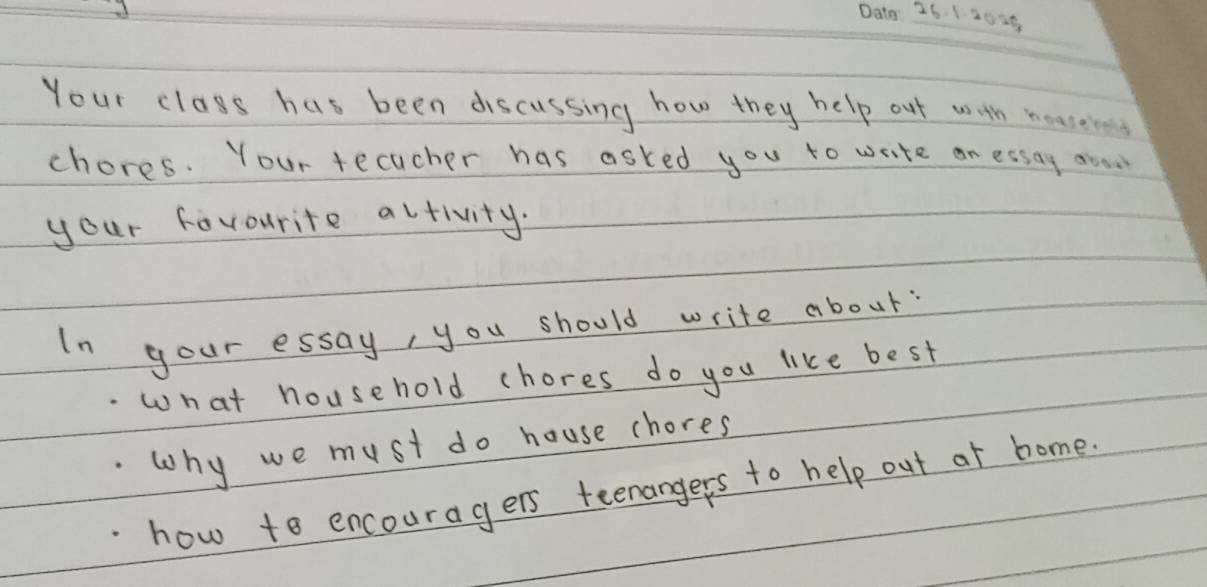 Date: 26.1.2025
Your class has been discussing how they help out with household
chores. Your tecucher has asked you to write an essay about
your favourite activity.
In your essay, you should write about:
• what household chores do you like best
• why we must do house chores
• how to encouragers teenangers to help out at home.